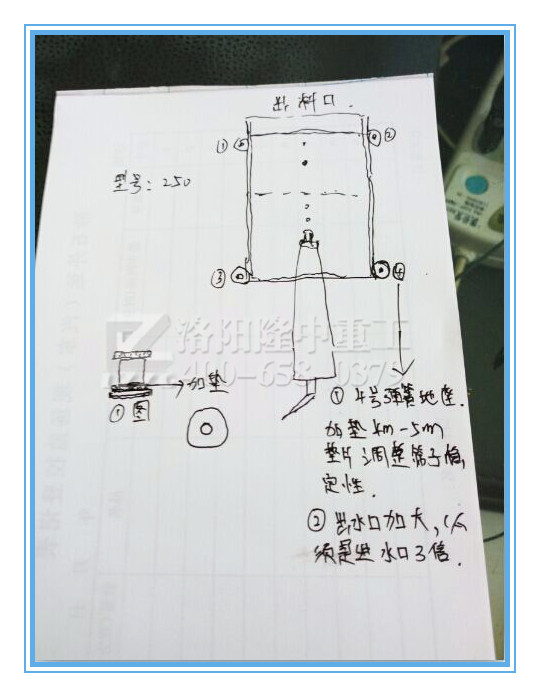 出料口.
① ②
型号: 250
③ ④
洛阳隆中重工
400-658-0379
→加垫
①图
① 4号弹簧地座.
加垫4m-5m
垫片调整筛子稳
定性.
② 出水口加大, 必
须是进水口3倍.